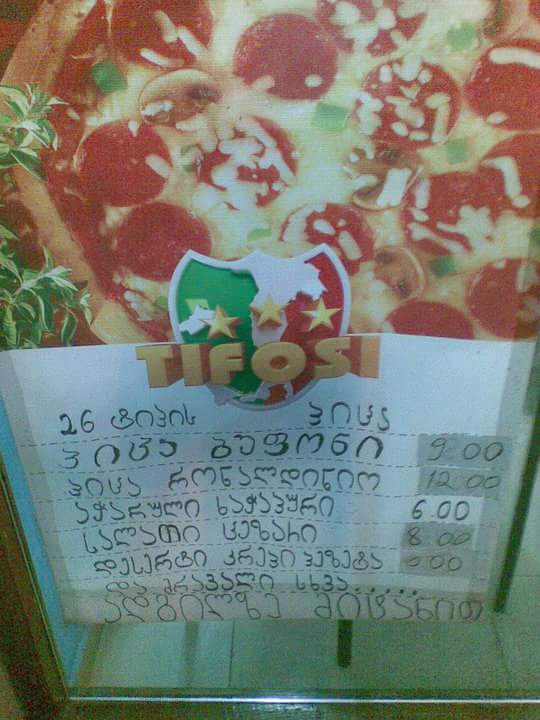 TIFOSI
26 ტიპის პიცა
პიცა ბუფონი 9.00
პიცა რონალდინიო 12.00
აჭარული ხაჭაპური 6.00
სალათი ცეზარი 8.00
დესერტი კრეპი პეზეტა
და მრავალი სხვა.....
ადგილზე მიტანით